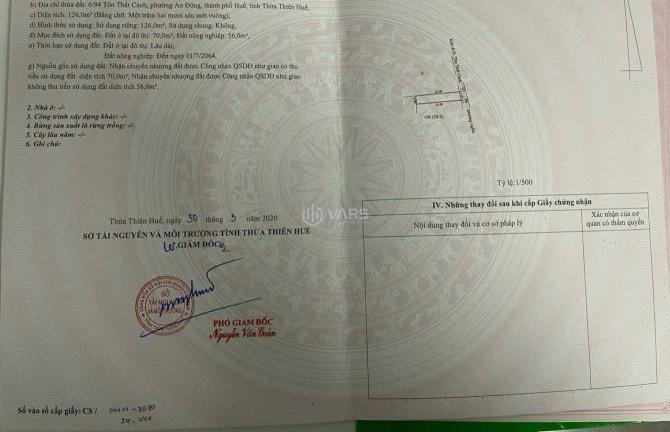 b) Địa chỉ thửa đất: 6/94 Tôn Thất Cảnh, phường An Đông, thành phố Huế, tỉnh Thừa Thiên Huế,
c) Diện tích: 126,0m² (Bằng chữ: Một trăm hai mươi sáu mét vuông),
d) Hình thức sử dụng: Sử dụng riêng: 126,0m²; Sử dụng chung: Không,
đ) Mục đích sử dụng đất: Đất ở tại đô thị: 70,0m²; Đất nông nghiệp: 56,0m²,
e) Thời hạn sử dụng đất: Đất ở tại đô thị: Lâu dài;
Đất nông nghiệp: Đến ngày 01/7/2064,
g) Nguồn gốc sử dụng đất: Nhận chuyển nhượng đất được Công nhận QSDĐ như giao đất có thu
tiền sử dụng đất diện tích 70,0m²; Nhận chuyển nhượng đất được Công nhận QSDĐ như giao
không thu tiền sử dụng đất diện tích 56,0m².
2. Nhà ở: -/-
3. Công trình xây dựng khác: -/-
4. Rừng sản xuất là rừng trồng: -/-
5. Cây lâu năm: -/-
6. Ghi chú:
Tỷ lệ: 1/500
VARS
Thừa Thiên Huế, ngày 30 tháng 3 năm 2020
SỞ TÀI NGUYÊN VÀ MÔI TRƯỜNG TỈNH THỪA THIÊN HUẾ
GIÁM ĐỐC
PHÓ GIÁM ĐỐC
Nguyễn Văn
Số vào sổ cấp giấy: CS /
IV. Những thay đổi sau khi cấp Giấy chứng nhận
Nội dung thay đổi và cơ sở pháp lý
Xác nhận của cơ
quan có thẩm quyền